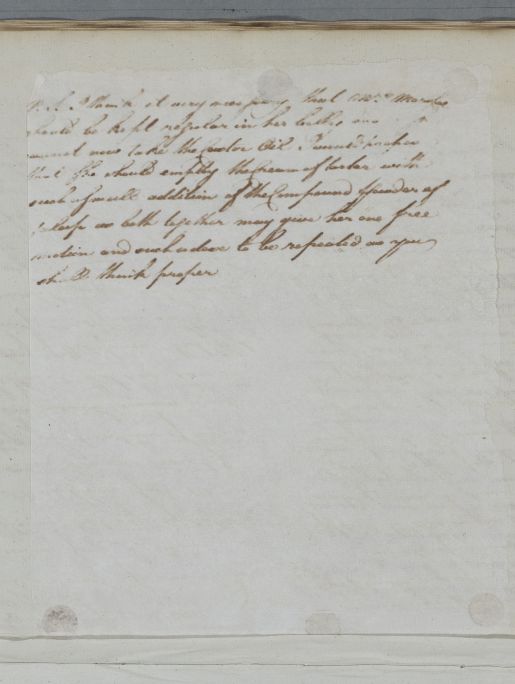 P.S. I think it very necessary that Mrs
should be kept regular in her belly, and
cannot now take the Castor Oil I would propose
that She should employ the Cream of tartar with
such a small addition of the Compound powder of
Jalap as both together may give her one free
motion and such a dose to be repeated as you
should think proper